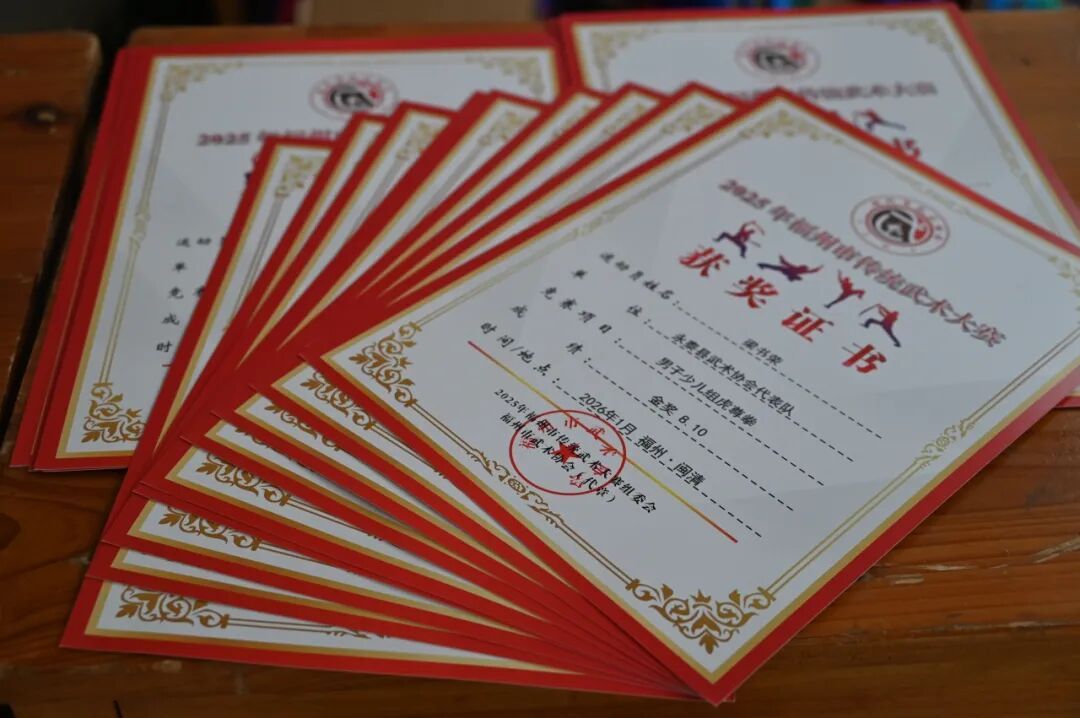 2025年福州市传统武术大赛
获奖证书
运动员姓名：梁书荣
单位：永泰县武术协会代表队
竞赛项目：男子少儿组虎尊拳
成绩：金奖 8.10
时间/地点：2026年1月 福州·闽清
2025年福州市传统武术大赛组委会
福州市武术协会（代章）
2025年福州
运动
单
竞赛
成
时
传统武术大赛